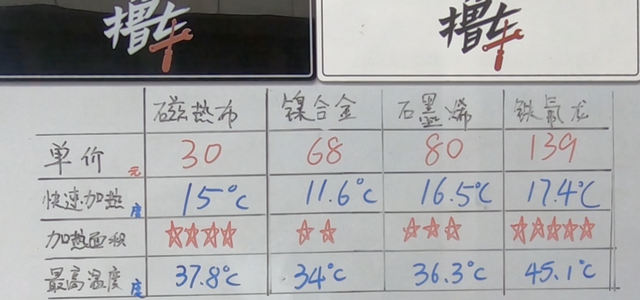 撸车
撸车
磁热布 镍合金 石墨烯 铁氟龙
单价元 30 68 80 139
快速加热度 15°C 11.6°C 16.5°C 17.4°C
加热面积 ☆☆☆☆ ☆☆ ☆☆☆ ☆☆☆☆☆
最高温度度 37.8°C 34°C 36.3°C 45.1°C